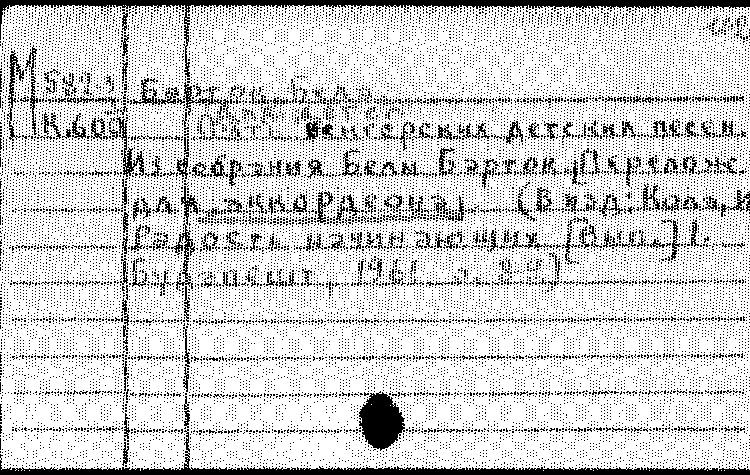 М
582-3 Барток, Бела.
К.609 венгерских детских песен.
Из собрания Белы Барток. Перелож.
для аккордеона. (В изд: Кола, И
Радость начинающих [Вып.] 1.
Будапешт, 1961. л. 2-4)